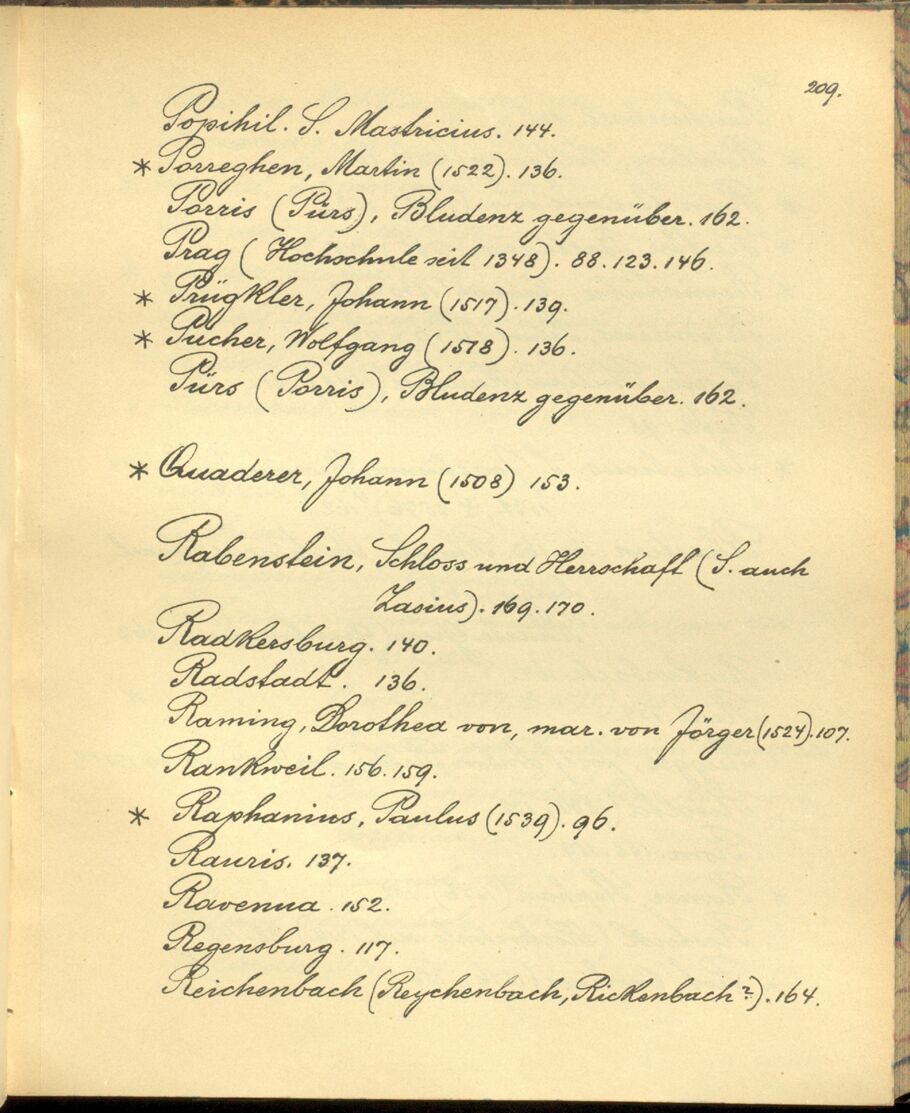 209.
Popihil. S. Mastricius. 144.
* Porreghen, Martin (1522). 136.
Porris (Pürs), Bludenz gegenüber. 162.
Prag (Hochschule seit 1348). 88. 123. 146.
* Prügkler, Johann (1517). 139.
* Pucher, Wolfgang (1518). 136.
Pürs (Porris), Bludenz gegenüber. 162.
* Quaderer, Johann (1508) 153.
Rabenstein, Schloss und Herrschaft (S. auch
Zasius). 169. 170.
Radkersburg. 140.
Radstadt. 136.
Raming, Dorothea von, mar. von Jörger (1524). 107.
Rankweil. 156. 159.
* Raphanius, Paulus (1539). 96.
Rauris. 137.
Ravenna. 152.
Regensburg. 117.
Reichenbach (Reychenbach, Rickenbach?). 164.